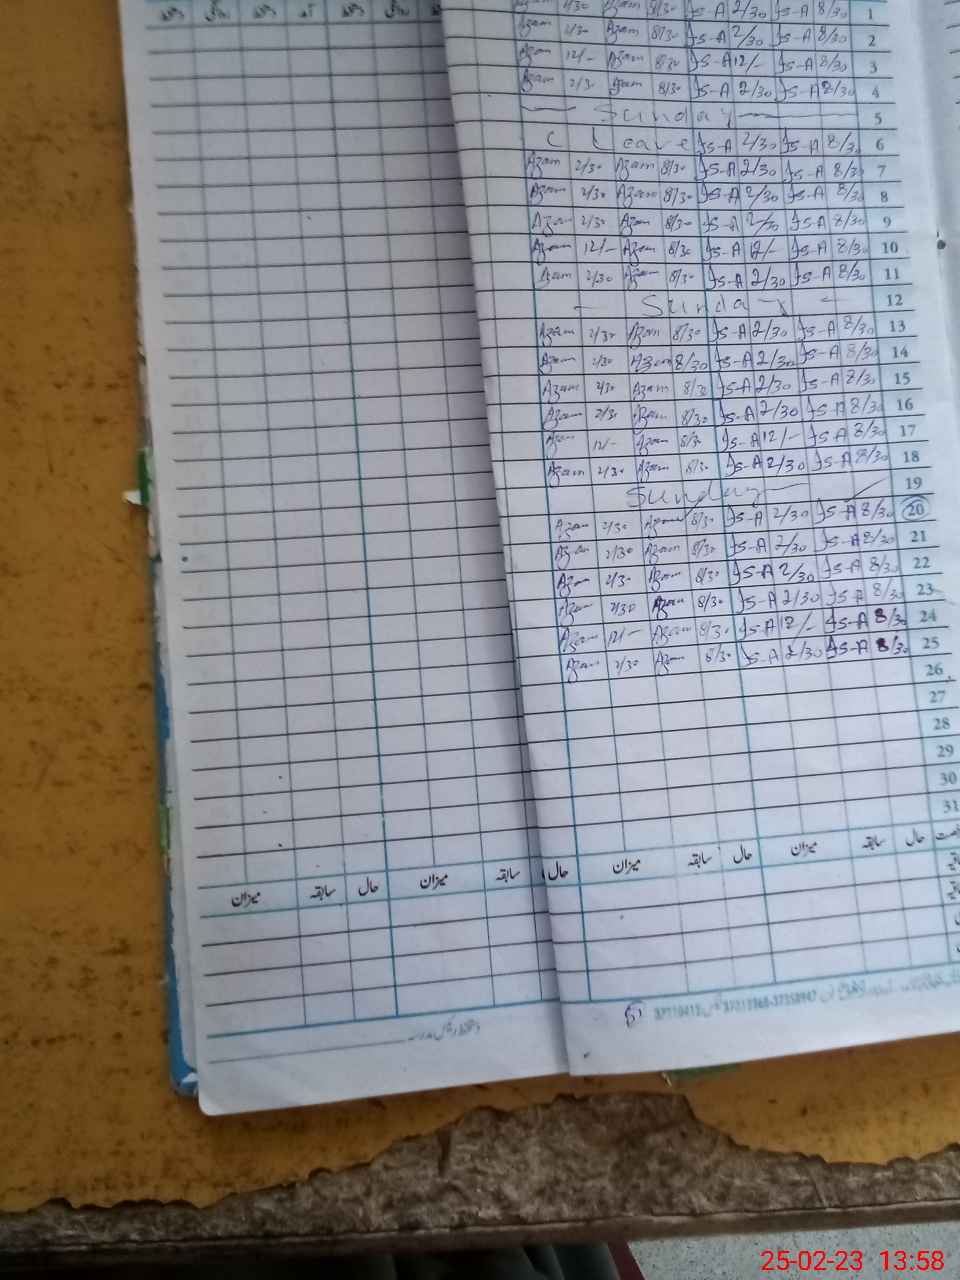 Azam 2/30 Azam 8/30 JS-A 2/30 JS-A 8/30 1
Azam 2/30 Azam 8/30 JS-A 2/30 JS-A 8/30 2
Azam 12/- Azam 8/30 JS-A 12/- JS-A 8/30 3
Azam 2/30 Azam 8/30 JS-A 2/30 JS-A 8/30 4
Sunday 5
C Leave JS-A 2/30 JS-A 8/30 6
Azam 2/30 Azam 8/30 JS-A 2/30 JS-A 8/30 7
Azam 2/30 Azam 8/30 JS-A 2/30 JS-A 8/30 8
Azam 2/30 Azam 8/30 JS-A 2/30 JS-A 8/30 9
Azam 12/- Azam 8/30 JS-A 12/- JS-A 8/30 10
Azam 2/30 Azam 8/30 JS-A 2/30 JS-A 8/30 11
Sunday 12
Azam 2/30 Azam 8/30 JS-A 2/30 JS-A 8/30 13
Azam 2/30 Azam 8/30 JS-A 2/30 JS-A 8/30 14
Azam 2/30 Azam 8/30 JS-A 2/30 JS-A 8/30 15
Azam 2/30 Azam 8/30 JS-A 2/30 JS-A 8/30 16
Azam 12/- Azam 8/30 JS-A 12/- JS-A 8/30 17
Azam 2/30 Azam 8/30 JS-A 2/30 JS-A 8/30 18
Sunday 19
Azam 2/30 Azam 8/30 JS-A 2/30 JS-A 8/30 20
Azam 2/30 Azam 8/30 JS-A 2/30 JS-A 8/30 21
Azam 2/30 Azam 8/30 JS-A 2/30 JS-A 8/30 22
Azam 2/30 Azam 8/30 JS-A 2/30 JS-A 8/30 23
Azam 12/- Azam 8/30 JS-A 12/- JS-A 8/30 24
Azam 2/30 Azam 8/30 JS-A 2/30 JS-A 8/30 25
26
27
28
29
30
31
حال سابقہ میزان حال سابقہ میزان
حال سابقہ میزان حال سابقہ میزان
25-02-23 13:58